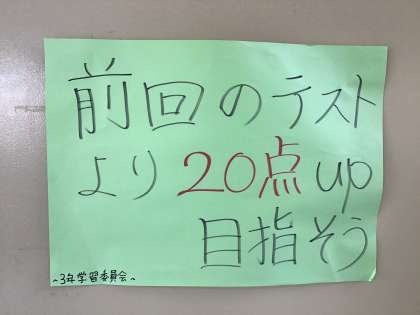 前回のテスト
より20点up
目指そう
~3年学習委員会~